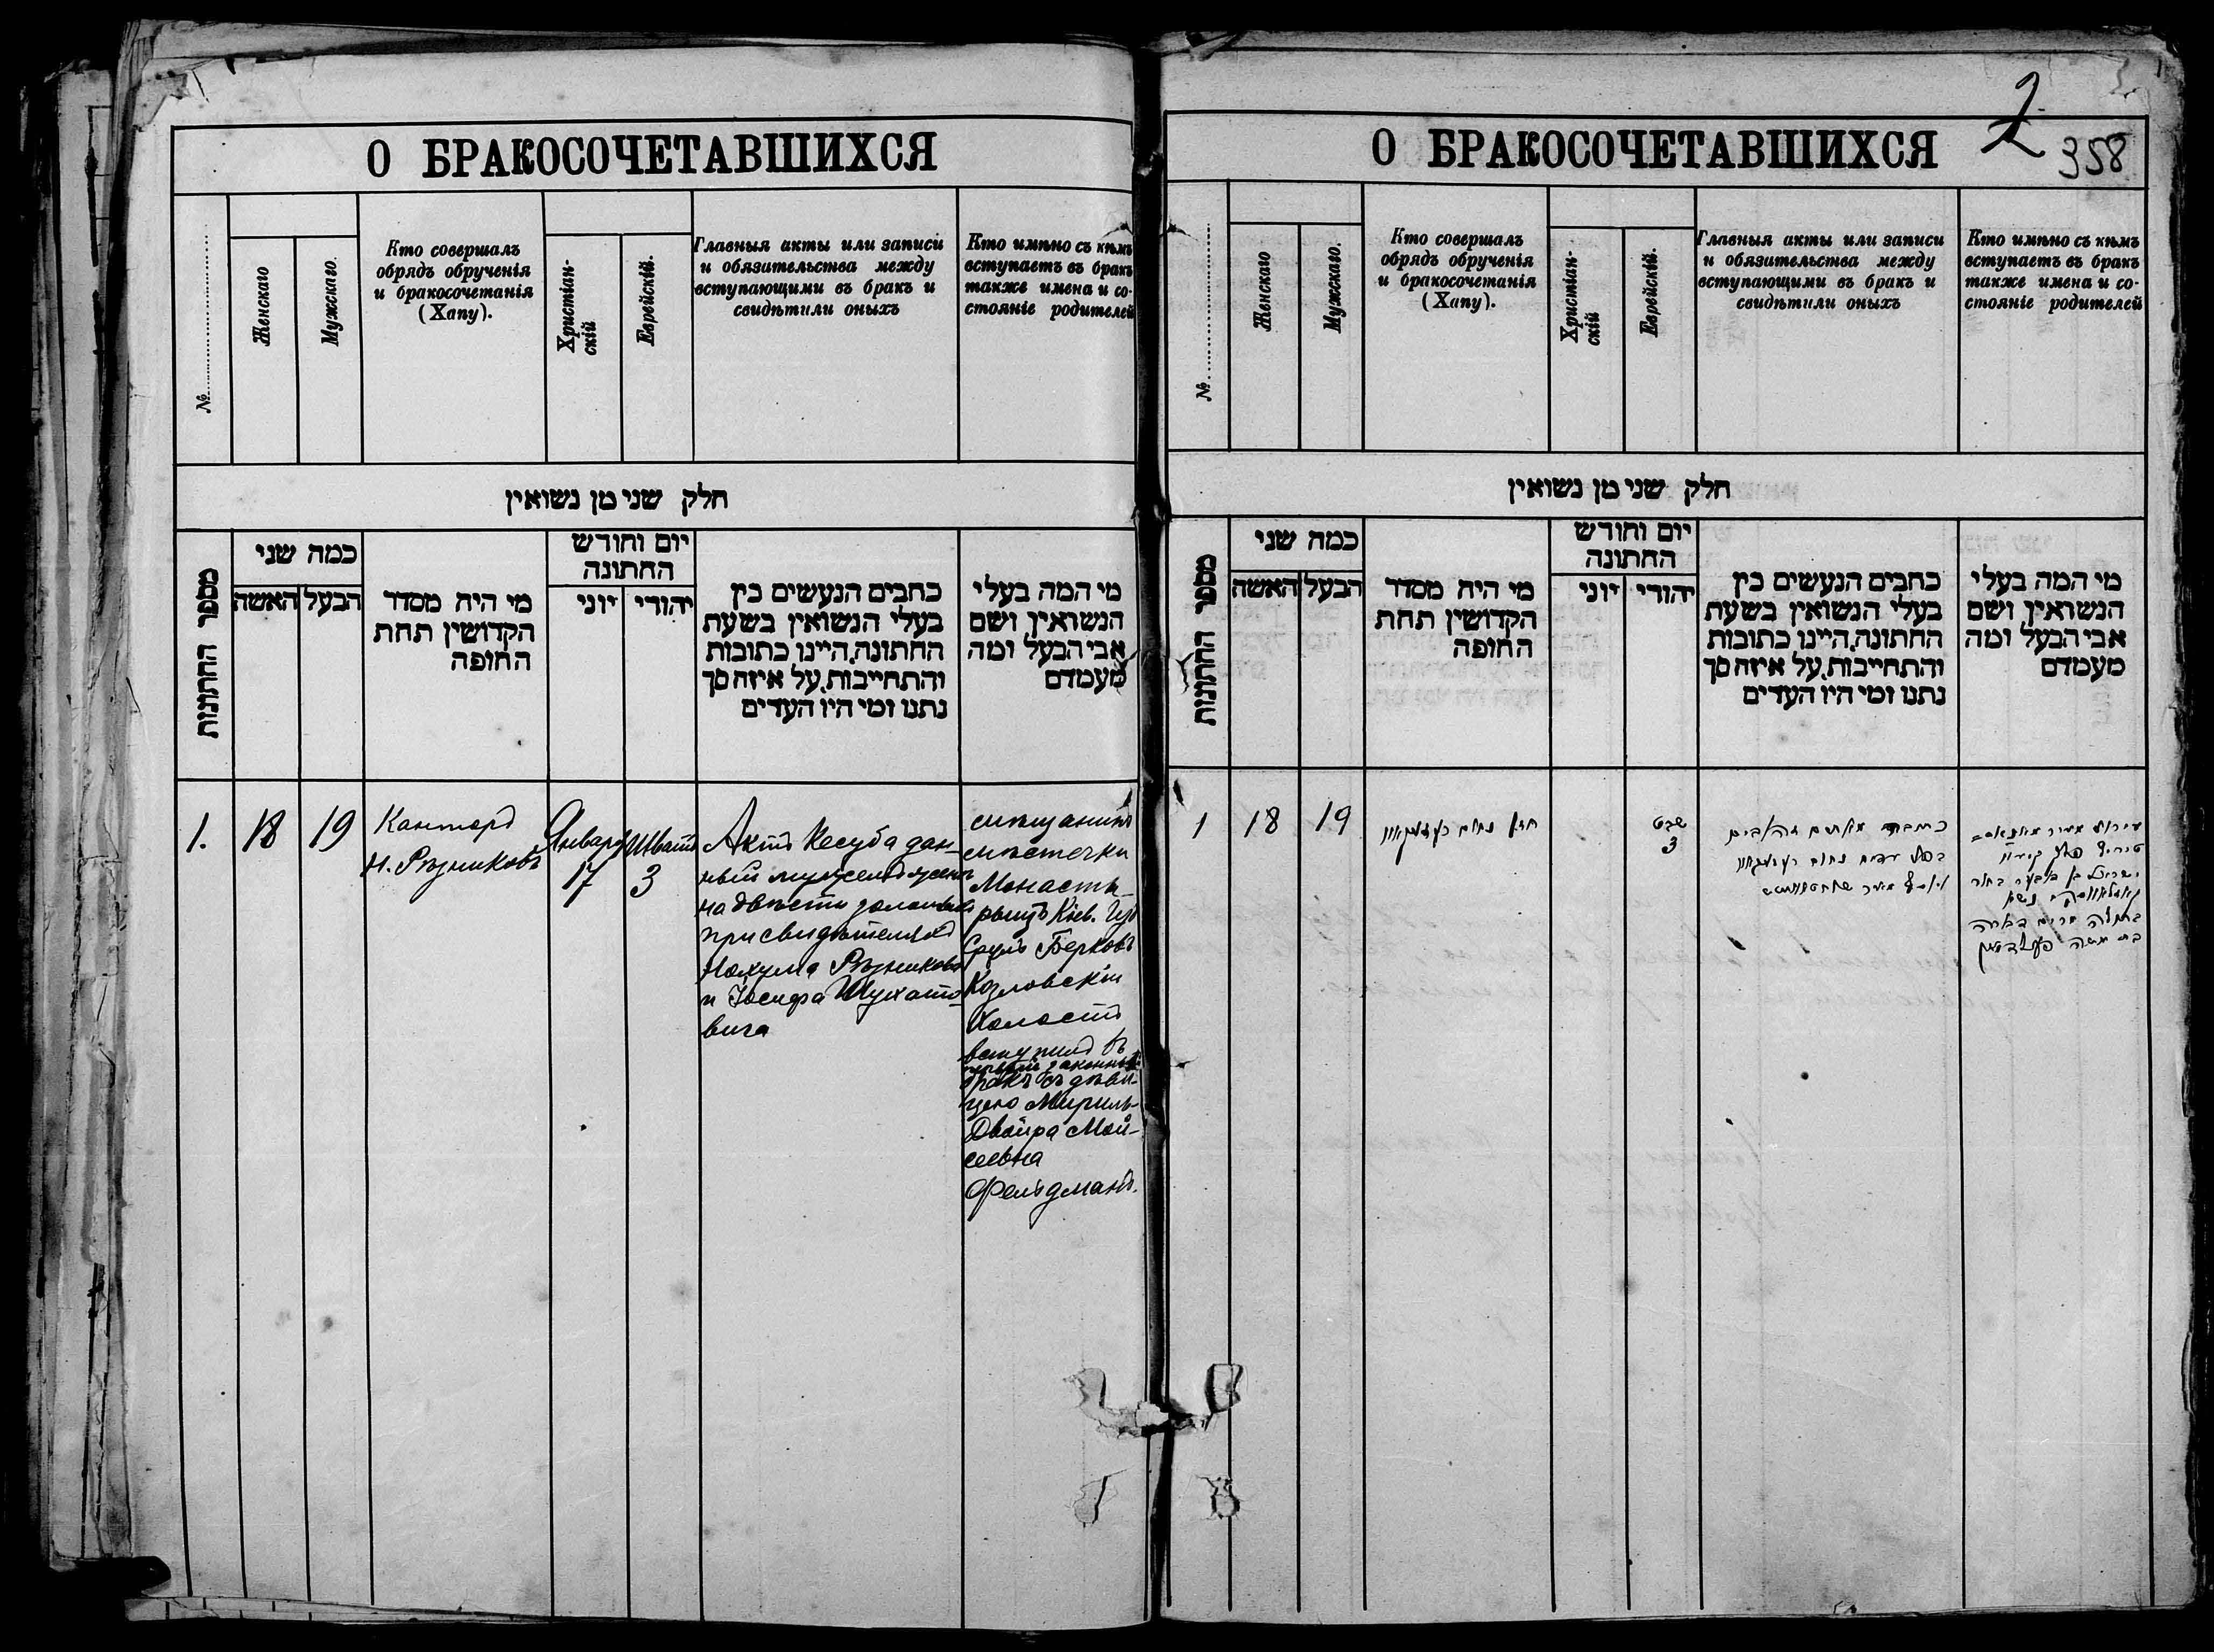 О БРАКОСОЧЕТАВШИХСЯ
№
Женскаго
Мужскаго.
Кто совершалъ
обрядъ обрученія
и бракосочетанія
(Хапу).
Христіан-
скій
Еврейскій.
Главныя акты или записи
и обязательства между
вступающими въ бракъ и
свидѣтили оныхъ
Кто имѣно съ кѣмъ
вступаетъ въ бракъ
также имена и со-
стояніе родителей
חלק שני מן נשואין
מספר החתונות
כמה שני
האשה
הבעל
מי היה מסדר
הקדושין תחת
החופה
יום וחודש
החתונה
יוני
יהודי
כתבים הנעשים בין
בעלי הנשואין בשעת
החתונה,היינו כתובות
והתחייבות,על איזה סך
נתנו ומי היו העדים
מי המה בעלי
הנשואין ושם
אבי הבעל ומה
מעמדם
1.
18
19
Канторъ
Н. Рѣзниковъ
Январь
17
Шватъ
3
Актъ Кесуба дан-
ный мужемъ женѣ
на двѣсти золотыхъ
при свидѣтеляхъ
Нохума Рѣзникова
и Іосифа Шухато-
вича
мѣщанинъ
мѣстечки
Монасты-
рыщъ Кіев. Губ
Сруль Берковъ
Козловскій
Холостъ
вступилъ въ
первый законный
бракъ съ дѣви-
цею Мириль-
Двойра Мой-
сеевна
Фельдманъ.
2
358
О БРАКОСОЧЕТАВШИХСЯ
№
Женскаго
Мужскаго.
Кто совершалъ
обрядъ обрученія
и бракосочетанія
(Хапу).
Христіан-
скій
Еврейскій.
Главныя акты или записи
и обязательства между
вступающими въ бракъ и
свидѣтили оныхъ
Кто имѣно съ кѣмъ
вступаетъ въ бракъ
также имена и со-
стояніе родителей
חלק שני מן נשואין
מספר החתונות
כמה שני
האשה
הבעל
מי היה מסדר
הקדושין תחת
החופה
יום וחודש
החתונה
יוני
יהודי
כתבים הנעשים בין
בעלי הנשואין בשעת
החתונה,היינו כתובות
והתחייבות,על איזה סך
נתנו ומי היו העדים
מי המה בעלי
הנשואין ושם
אבי הבעל ומה
מעמדם
1
18
19
חזן נחום רעזניקאוו
שבט
3
כתובה מאתים זהובים
נחום רעזניקאוו
נשא
בתולה מרים דבורה
בת משה פעלדמאן